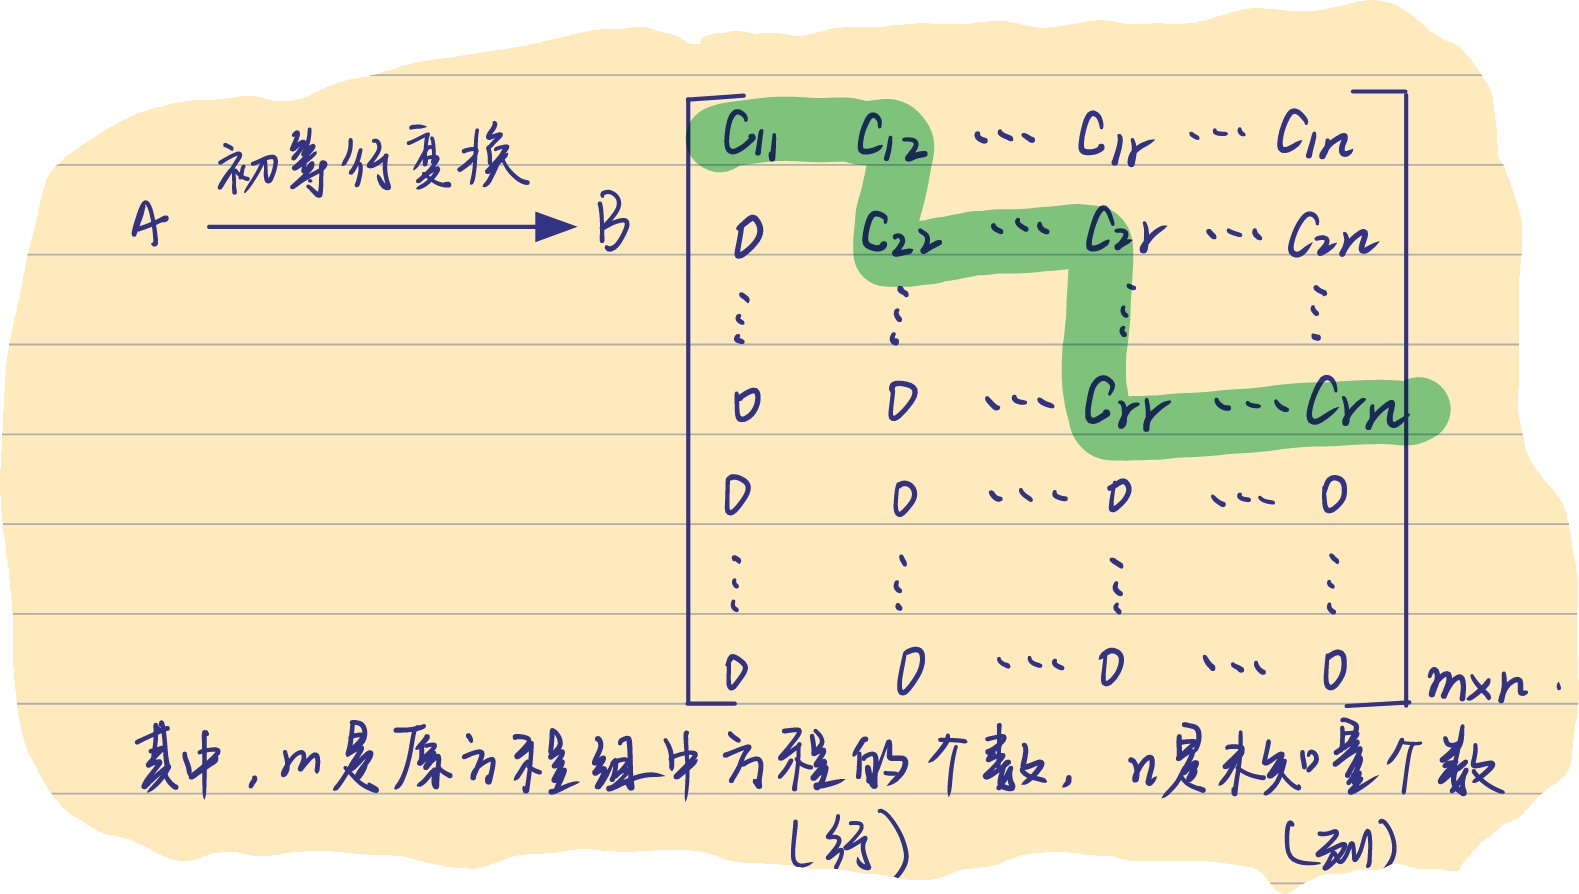 初等行变换
A → B
C₁₁ C₁₂ ⋯ C₁ᵣ ⋯ C₁ₙ
0 C₂₂ ⋯ C₂ᵣ ⋯ C₂ₙ
⋮ ⋮ ⋮ ⋮
0 0 ⋯ Cᵣᵣ ⋯ Cᵣₙ
0 0 ⋯ 0 ⋯ 0
⋮ ⋮ ⋮ ⋮
0 0 ⋯ 0 ⋯ 0
m×n.
其中,m是原方程组中方程的个数,n是未知量个数
(行) (列)